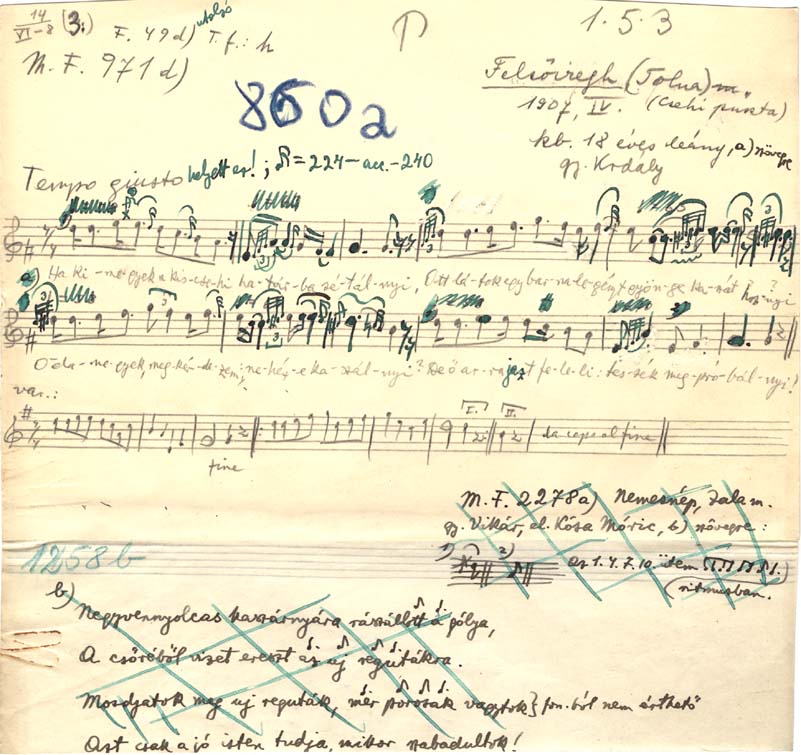 14
VI-8 (3.) F. 49d) utolsó T. f.: h 1. 5. 3
M. F. 971 d) Felsőiregh (Tolna) m.
8650a 1907, IV. (Csehi puszta)
kb. 18 éves leány, a) szövegre
Tempo giusto helyett ez! ; = 224 — acc. - 240 gy. Kodály
a) Ha ki-me-gyek a kis-cse-hi ha-tár-ba sé-tál-nyi, Ott lá-tok egy bar-na le-gényt gyön-ge ka-szát
O-da-me-gyek, meg-kér-de-zem, ne-héz-e ka-szál-nyi? De ő ar-ra jazt fe-le-li: tes-sék meg-pró-bál-nyi!
var.:
fine da capo al fine
I. II.
M. F. 2278a) Nemesnép, Zala m.
gy. Vikár, el. Kósa Móric, b) szövegre:
1258b 1) 2) Az 1. 4. 7. 10. ütem
ritmusban.
b) Negyvennyolcas kaszárnyára rászállott a gólya,
A csőréből vizet ereszt az uj regutákra.
Mosdjatok meg uj reguták, mer porosak vagytok } fon.-ból nem érthető
Azt csak a jó isten tudja, mikor szabadultok!